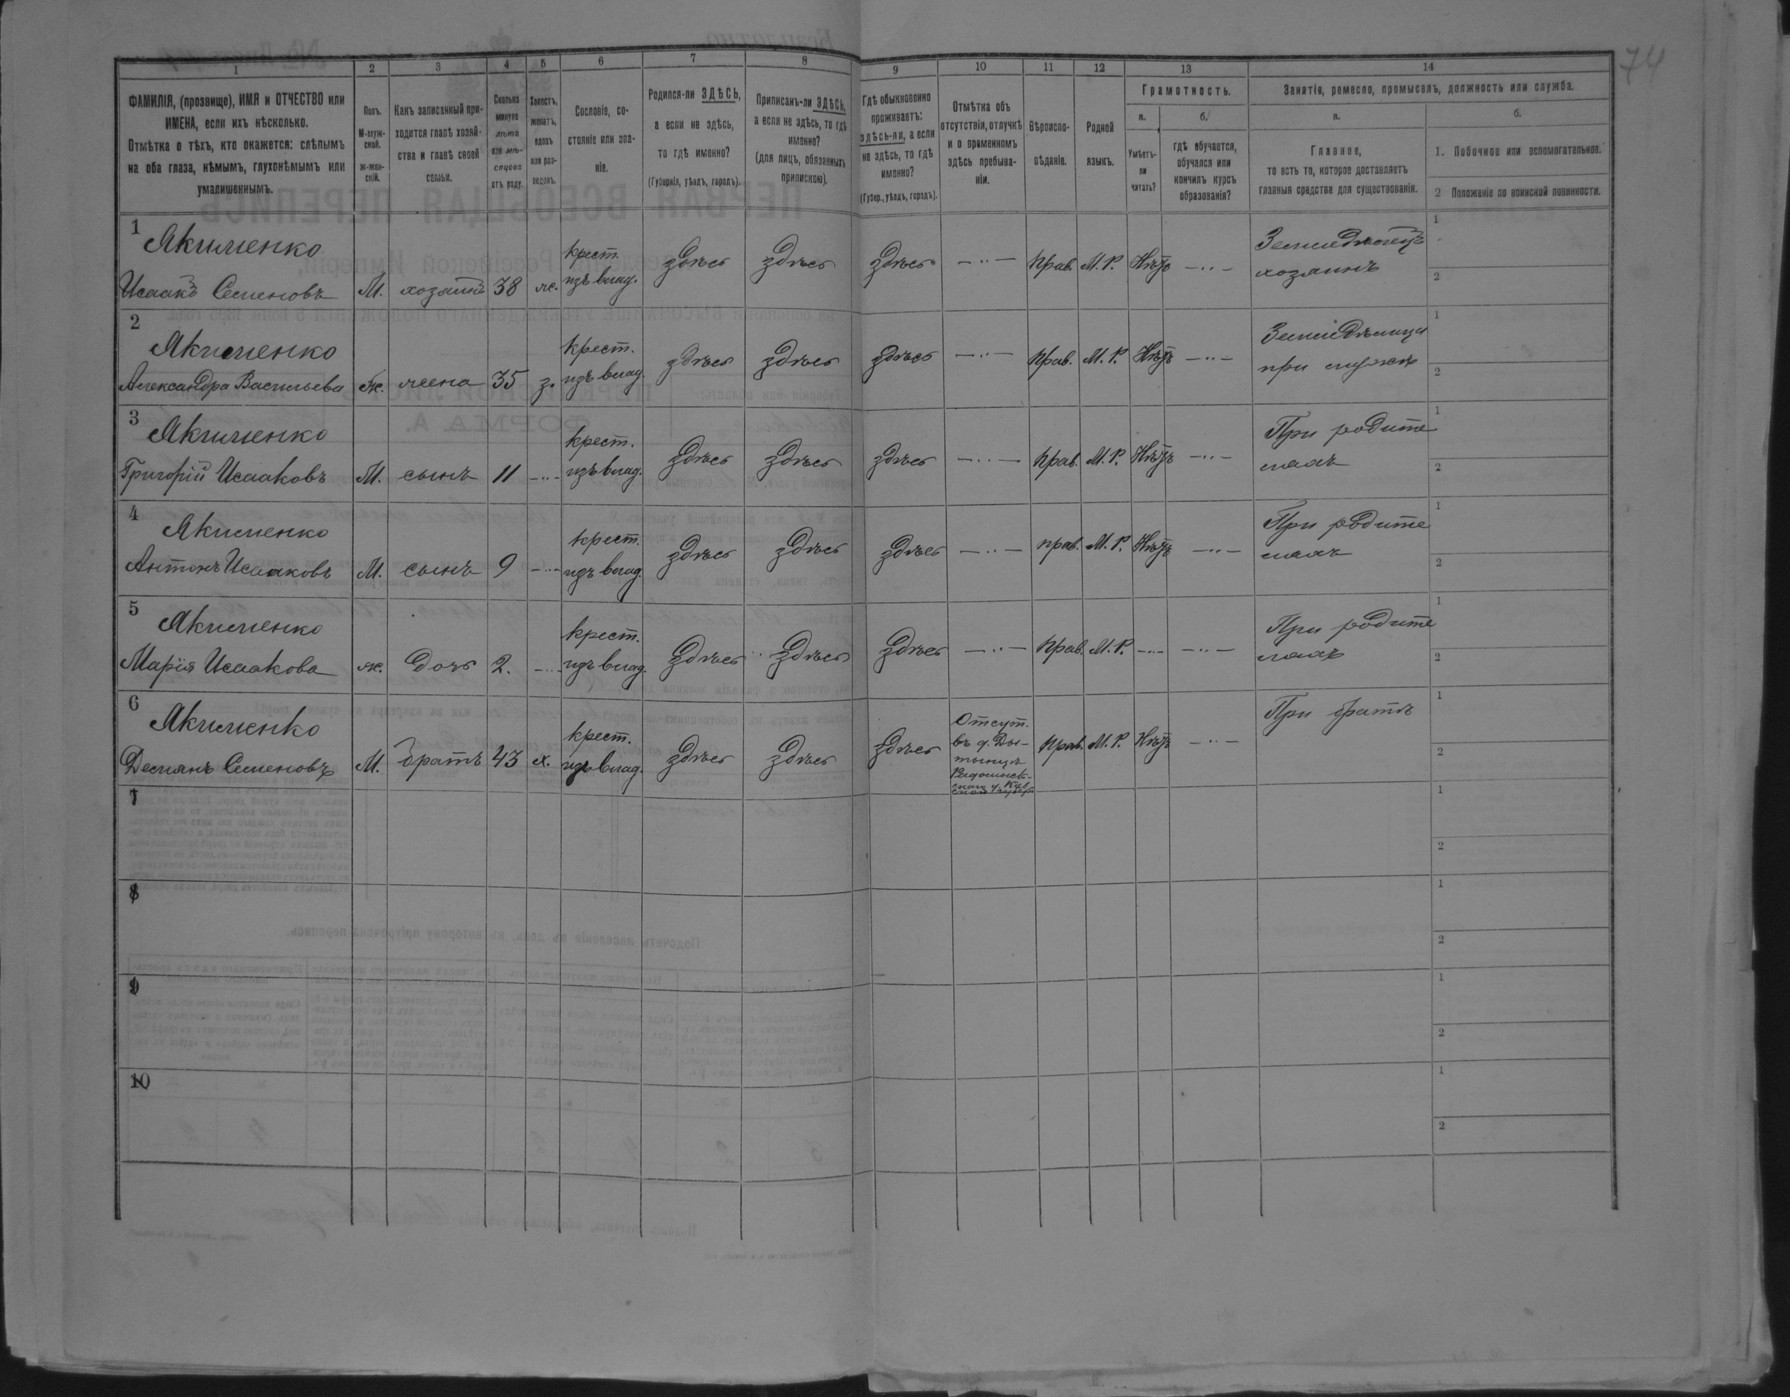 74
1 2 3 4 5 6 7 8 9 10 11 12 13 14
ФАМИЛІЯ, (прозвище), ИМЯ и ОТЧЕСТВО или
ИМЕНА, если ихъ нѣсколько.
Отмѣтка о тѣхъ, кто окажется: слѣпымъ
на оба глаза, нѣмымъ, глухонѣмымъ или
умалишеннымъ.
Полъ.
М-муж-
ской.
ж-жен-
скій.
Какъ записанный при-
ходится главѣ хозяй-
ства и главѣ своей
семьи.
Сколько
минуло
лѣтъ
или мѣ-
сяцевъ
отъ роду.
Холостъ,
женатъ,
вдовъ
или раз-
веденъ.
Сословіе, со-
стояніе или зва-
ніе.
Родился-ли ЗДѢСЬ,
а если не здѣсь,
то гдѣ именно?
(Губернія, уѣздъ, городъ).
Приписанъ-ли ЗДѢСЬ,
а если не здѣсь, то гдѣ
именно?
(для лицъ, обязанныхъ
припискою).
Гдѣ обыкновенно
проживаетъ:
здѣсь-ли, а если
не здѣсь, то гдѣ
именно?
(Губер., уѣздъ, городъ).
Отмѣтка объ
отсутствіи, отлучкѣ
и о временномъ
здѣсь пребыва-
ніи.
Вѣроиспо-
вѣданіе.
Родной
языкъ.
Грамотность.
а.
Умѣетъ-
ли
читать?
б.
гдѣ обучается,
обучался или
кончилъ курсъ
образованія?
Занятіе, ремесло, промыселъ, должность или служба.
а.
Главное,
то есть то, которое доставляетъ
главныя средства для существованія.
б.
1. Побочное или вспомогательное.
2 Положеніе по воинской повинности.
1
Якименко
Исаакъ Семеновъ М. хозяинъ 38 ж. крест. изъ влад. здѣсь здѣсь здѣсь — ·· — прав. М. Р. Нѣтъ — ·· — Земледѣлецъ
хозяинъ
1
2
2
Якименко
Александра Васильева ж. жена 35 з. крест. изъ влад. здѣсь здѣсь здѣсь — ·· — прав. М. Р. Нѣтъ — ·· —
при мужѣ
1
2
3
Якименко
Григорій Исааковъ М. сынъ 11 — ·· — крест. изъ влад. здѣсь здѣсь здѣсь — ·· — прав. М. Р. Нѣтъ — ·· — При родите
ляхъ
1
2
4
Якименко
Антонъ Исааковъ М. сынъ 9 — ·· — крест. изъ влад. здѣсь здѣсь здѣсь — ·· — прав. М. Р. Нѣтъ — ·· — При родите
ляхъ
1
2
5
Якименко
Марія Исаакова ж. дочь 2. — ·· — крест. изъ влад. здѣсь здѣсь здѣсь — ·· — прав. М. Р. — ·· — — ·· — При родите
ляхъ
1
2
6
Якименко
Демянъ Семеновъ М. братъ 43 х. крест. изъ влад. здѣсь здѣсь здѣсь Отсут.
въ
прав. М. Р. Нѣтъ — ·· — При братѣ
1
2
7
1
2
8
1
2
9
1
2
10
1
2